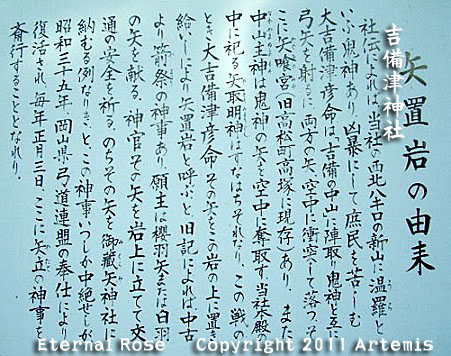 矢置岩の由来
吉備津神社
社伝によれば、当社の西北八キロの新山に温羅と
いふ鬼神あり、凶暴にして庶民を苦しむ
大吉備津彦命は吉備の中山に陣取り、鬼神と互に
弓矢を射るに、両方の矢、空中に衝突して落つ。そ
こに矢喰宮(旧高松町高塚に現存)あり、また
中山主神は鬼神の矢を空中に奪取す、当社本殿の
中に祀る矢取明神はすなはちそれなり、この戦の
とき大吉備津彦命、その矢をこの岩の上に置き
給いしにより矢置岩と呼ぶと、旧記によれば中古
より箭祭の神事あり、願主は櫻羽矢または白羽
の矢を献る、神官その矢を岩上に立てて交
通の安全を祈る、のちその矢を御蔵矢神社に
納むる例なりきと、この神事いつしか中絶せしが
昭和三十五年、岡山県弓道連盟の奉仕により
復活され、毎年正月三日、ここに矢立の神事を
斎行することとなれり。
Eternal Rose Copyright 2011 Artemis